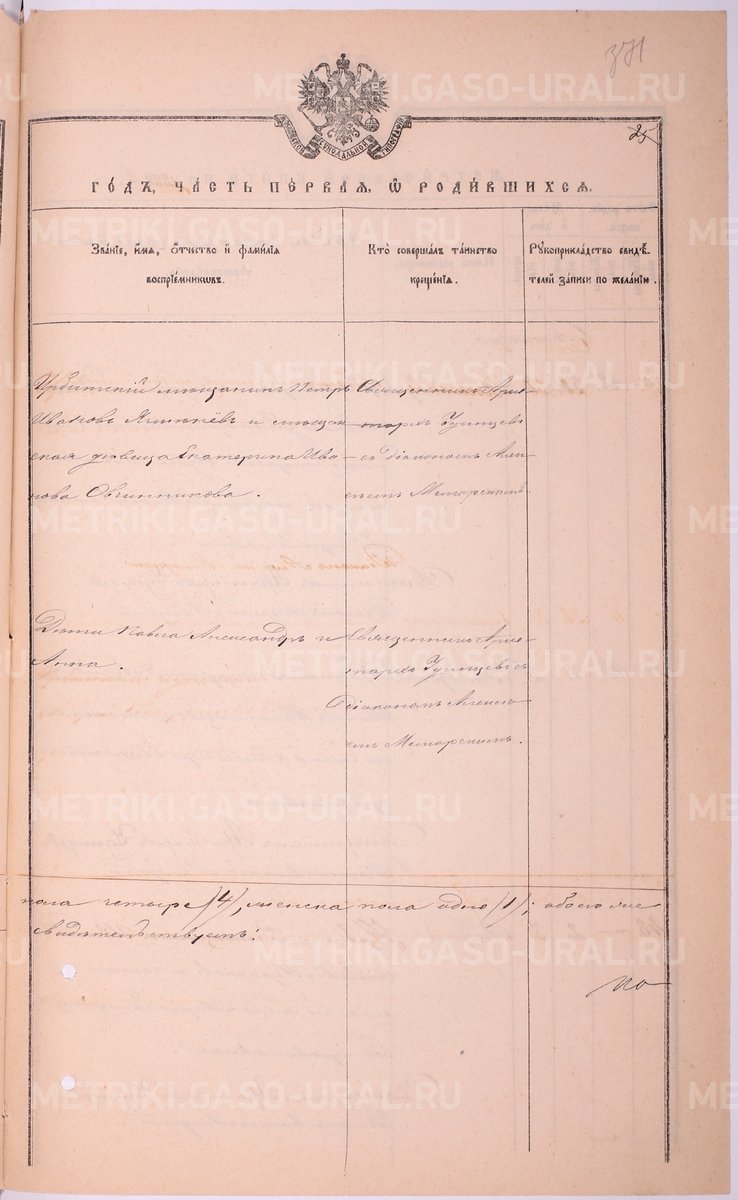 371
25
ГО́ДЪ, ЧА́СТЬ ПЕ́РВАЯ, Ѡ РОДИ́ВШИХСЯ.
ЗВА́НІЕ, И́МЯ, О́ТЧЕСТВО И ФАМИ́ЛІЯ
ВОСПРІЕ́МНИКОВЪ.
КТО̀ СОВЕРША́ЛЪ ТА́ИНСТВО
КРЕЩЕ́НІЯ.
РУКОПРИКЛА́ДСТВО СВИДѢ́-
ТЕЛЕЙ ЗА́ПИСИ ПО ЖЕЛА́НІЮ.
Ирбитскій мѣщанинъ Петръ
Ивановъ и мѣщан
ская дѣвица Екатерина Ива
нова Овчинникова.
Священникъ Арис
тархъ Удинцевъ
съ Діакономъ Алек
сѣемъ
Дѣти Павла Александръ и
Анна.
Священникъ Арис
тархъ Удинцевъ съ
Діакономъ Алексѣ
емъ
пола четыре /4/, женска пола одно /1/; обоего же
свидѣтельствуемъ:
по
METRIKI.GASO-URAL.RU